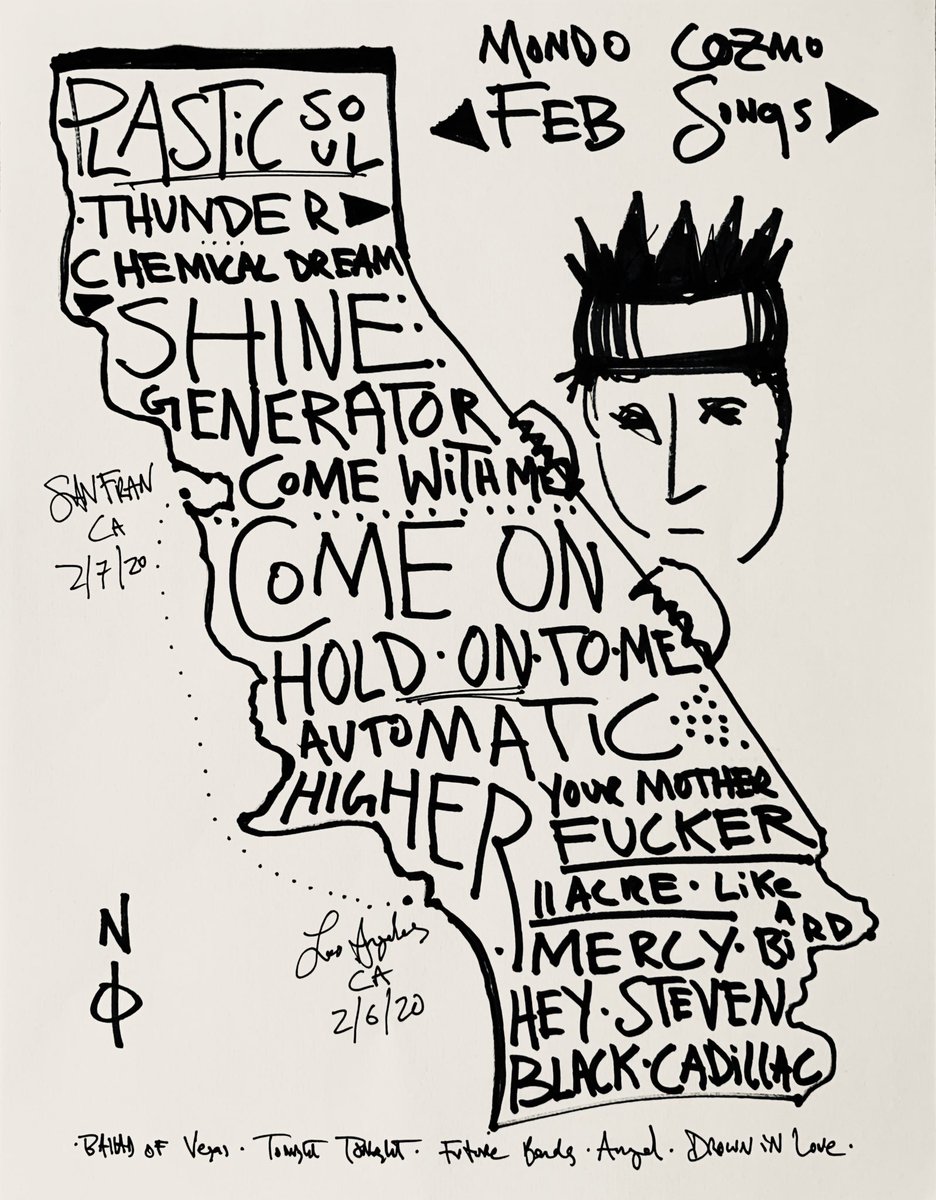 MONDO COZMO
FEB SONGS
PLASTiC SO
UL
THUNDER
CHEMICAL DREAM
SHINE
GENERATOR
COME WiTH ME
COME ON
HOLD · ON · TO · ME
AUTOMATiC
HIGHER
YOUR MOTHER
FUCKER
11 ACRE · LiKe
A
MERCY · BiRD
HEY · STEVEN
BLACK · CADiLLAC
SAN FRAN
CA
2/7/20
Los Angeles
CA
2/6/20
N
· BALLAD OF Vegas · Tonight Tonight · Future Bonds · Angel · DROWN iN Love ·